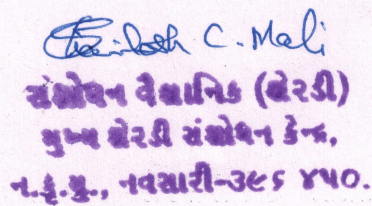 C. Mali
સંશોધન વૈજ્ઞાનિક (શેરડી)
મુખ્ય શેરડી સંશોધન કેન્દ્ર,
ન.કૃ.યુ., નવસારી-૩૯૬ ૪૫૦.